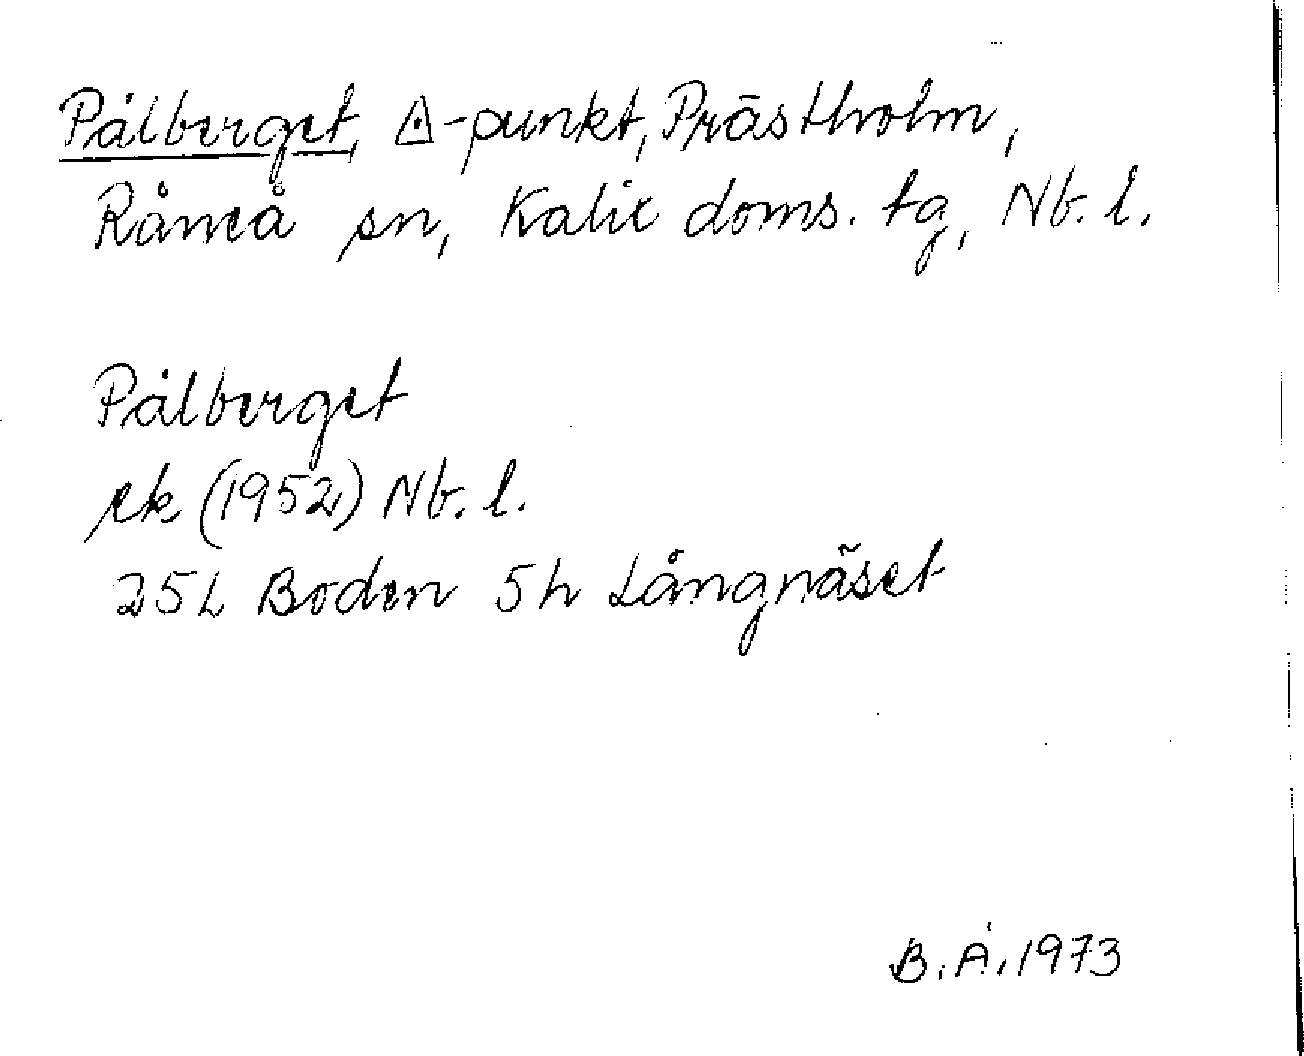 Pålberget, △-punkt, Prästholm,
Råneå sn, Kalix doms. tg, Nb. l.
Pålberget
ek (1952) Nb. l.
25L Boden 5h Långnäset
B. Å. 1973